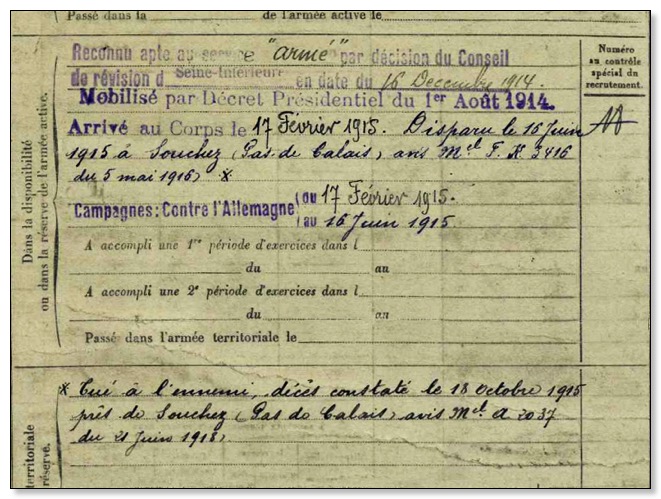 Passé dans la
de l'armée active le
Reconnu apte au service "armé" par décision du Conseil
de révision d Seine-Inférieure en date du 16 Décembre 1914.
Mobilisé par Décret Présidentiel du 1er Août 1914.
Arrivé au Corps le 17 Février 1915. Disparu le 16 Juin
1915 à Souchez (Pas-de-Calais) avis Mel F. K 3416
du 5 mai 1916) *
Campagnes: Contre l'Allemagne (du 17 Février 1915.
au 16 Juin 1915
A accompli une 1re période d'exercices dans l
du au
A accompli une 2e période d'exercices dans l
du au
Passé dans l'armée territoriale le
* Tué à l'ennemi, décès constaté le 18 Octobre 1915
près de Souchez (Pas de Calais) avis Mel A 2037
du 21 Juin 1918)
Numéro
au contrôle
spécial du
recrutement.
Dans la disponibilité
ou dans la réserve de l'armée active.
territoriale
réserve.